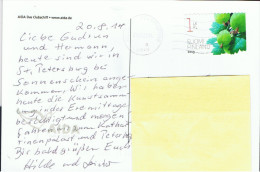 AIDA Das Clubschiff • www.aida.de
20.8.14
Liebe Gudrun
und Hermann,
heute sind wir in
St. Petersburg bei
Sonnenschein ange
kommen. Wir haben
heute die Kunstsamm
lungen der Eremitage
besichtigt und morgen
fahren wir zum Katha
rinenpalast und Peterhof
Bis bald grüßen Euch
Hilde und
1